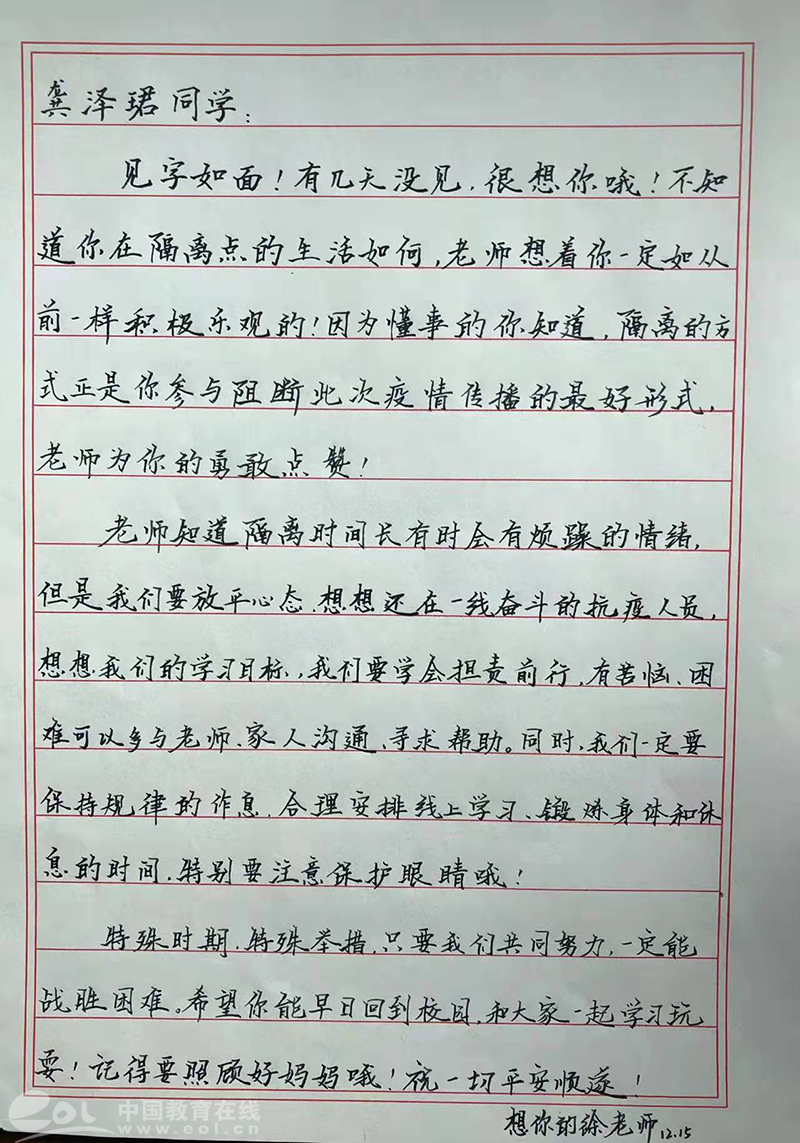 龚泽珺同学：
见字如面！有几天没见，很想你哦！不知
道你在隔离点的生活如何，老师想着你一定如从
前一样积极乐观的！因为懂事的你知道，隔离的方
式正是你参与阻断此次疫情传播的最好形式，
老师为你的勇敢点赞！
老师知道隔离时间长有时会有烦躁的情绪，
但是我们要放平心态，想想还在一线奋斗的抗疫人员，
想想我们的学习目标，我们要学会担责前行，有苦恼、困
难可以多与老师、家人沟通、寻求帮助。同时，我们一定要
保持规律的作息，合理安排线上学习、锻炼身体和休
息的时间，特别要注意保护眼睛哦！
特殊时期，特殊举措，只要我们共同努力，一定能
战胜困难。希望你能早日回到校园，和大家一起学习玩
耍！记得要照顾好妈妈哦！祝一切平安顺遂！
想你的徐老师 12.15
eol 中国教育在线
www.eol.cn